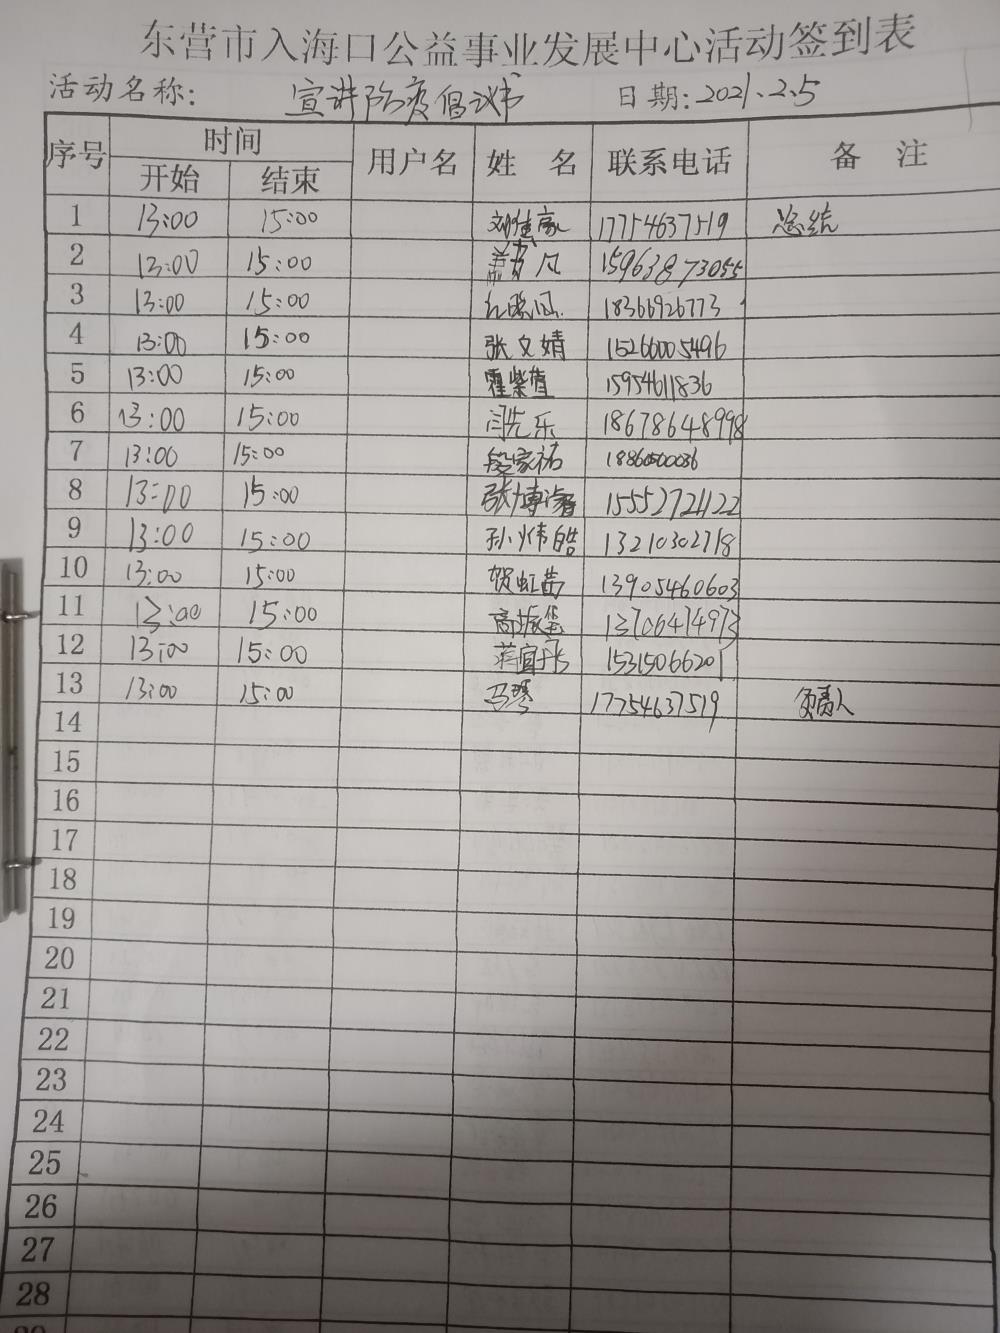 东营市入海口公益事业发展中心活动签到表
活动名称: 宣讲防疫倡议书 日期: 2021.2.5
序号 时间 用户名 姓 名 联系电话 备 注
开始 结束
1 13:00 15:00 刘佳豪 17754637519 总结
2 13:00 15:00 凡 15963873055
3 13:00 15:00 18366926773
4 13:00 15:00 张文婧 15266005496
5 13:00 15:00 霍紫萱 15954611836
6 13:00 15:00 闫先乐 18678648998
7 13:00 15:00 段家祐 18860500036
8 13:00 15:00 张博 15552721122
9 13:00 15:00 孙炜皓 13210302718
10 13:00 15:00 贺虹茜 13905460603
11 13:00 15:00 高振 13706474973
12 13:00 15:00 蒋宜彤 15315066201
13 13:00 15:00 马琴 17754637519 负责人
14
15
16
17
18
19
20
21
22
23
24
25
26
27
28